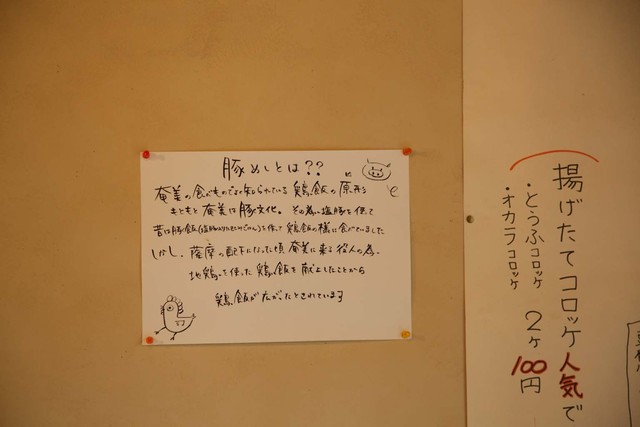 豚めしとは??
奄美の食べもので知られている 鶏飯の原形
もともと奄美は豚文化。その為、塩豚を使って
昔は豚飯を使って鶏飯の様に食べていました
しかし、薩摩の配下になった頃 奄美に来る役人の為、
地鶏を使った鶏飯を献上したことから
鶏飯が広がったとされています
揚げたてコロッケ人気で
・とうふコロッケ
・オカラコロッケ
2ヶ
100円